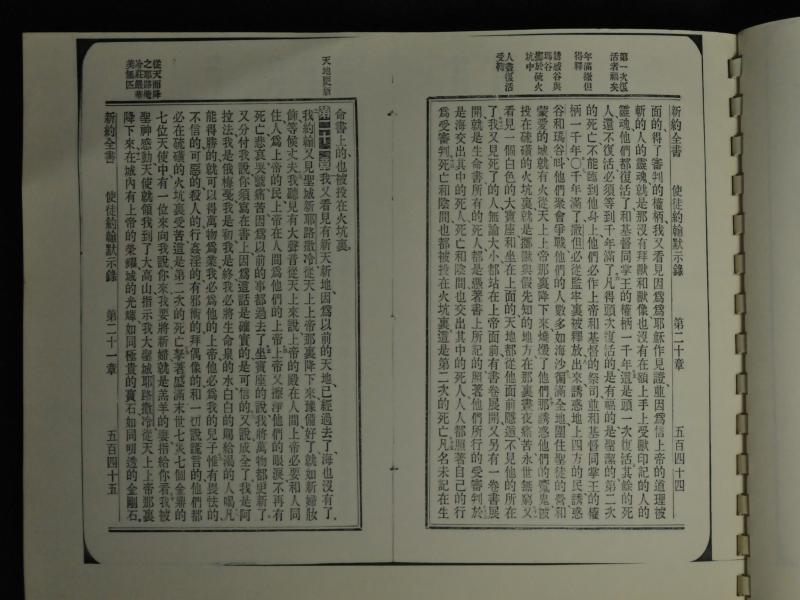 第一次復
活者福矣
年滿撒但
得釋
誘惑谷與
瑪谷
擲於硫火
坑中
人盡復活
受鞫
新約全書 使徒約翰默示錄 第二十章 五百四十四
面的、得了審判的權柄、我又看見因爲爲耶穌作見證、並因爲信上帝的道理被
斬的人的靈魂、就是那沒有拜獸和獸像、也沒有在額上手上受獸印記的人的
靈魂、他們都復活了、和基督同掌王的權柄一千年、這是頭一次復活、其餘的死
人還不復活、必須等到一千年滿了、凡得頭次復活的是有福的、是聖潔的、第二次
的死亡不能臨到他身上、他們必作上帝和基督的祭司、並和基督同掌王的權
柄一千年〇一千年滿了、撒但必從監牢裏被釋放、出來誘惑地上四方的民、誘惑
谷和瑪谷、呌他們聚會爭戰、他們的人數多如海沙、彌滿全地、圍住聖徒的營、和
蒙愛的城、就有火從天上上帝那裏降下來、燒燬了他們、那誘惑他們的魔鬼被
投在硫磺的火坑裏、就是那獸與假先知的地方、在那裏晝夜痛苦、永世無窮、又
看見一個白色的大寶座、和坐在上面的、天地都從他面前隱遁、不見他的所在
了、我又見死了的人、無論大小都站在上帝面前、有書卷展開、又另有一卷書展
開、就是生命書、所有的死人都是憑著書上所記的、照著他們所行的受審判、於
是海交出其中的死人、死亡和陰間也交出其中的死人、人人都照著自己的行
爲受審判、死亡和陰間也都被投在火坑裏、這是第二次的死亡、凡名未記在生
命書上的、也被投在火坑裏、
天地更新
從天而降
之耶路撒
冷莊嚴華
美無匹
第二十一章 我又看見有新天新地、因爲以前的天地已經過去了、海也沒有了、
我約翰又見聖城新耶路撒冷、從天上上帝那裏降下來、豫備好了、就如新婦妝
飾等候丈夫、我聽見有大聲音從天上來說、上帝的殿在人間、上帝必要和人同
住、人爲上帝的民、上帝在人間爲他們的上帝、上帝又擦淨他們的眼淚、不再有
死亡悲哀哭號痛苦、因爲以前的事都過去了、坐寶座的說、我將萬物都更新了、
又分付我說、你須寫在書上、因爲這話是確實的、是可信的、又說、成全了、我是阿
拉法、我是俄梅戛、我是初、我是終、我必將生命泉的水、白白的賜給渴的人喝、凡
能得勝的、就可以得萬物爲業、我必爲他的上帝、他必爲我的兒子、惟有畏怯的、
不信的、可惡的、殺人的、行姦淫的、有邪術的、拜偶像的、和一切說謊言的、他們都
必在硫磺的火坑裏受苦、這是第二次的死亡、拏著盛滿末世七災七個金鼎的
七位天使中、有一位來向我說、你來、我要將新婦就是羔羊的妻、指給你看、我被
聖神感動、天使就領我到了大高山、指示我大聖城耶路撒冷、從天上上帝那裏
降下來、在城內有上帝的榮耀、城的光輝如同極貴的寶石、如同明透的金剛石、
新約全書 使徒約翰默示錄 第二十一章 五百四十五